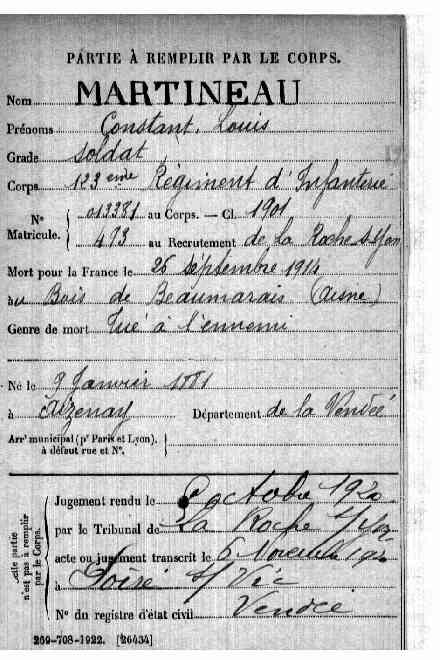 PARTIE À REMPLIR PAR LE CORPS.
Nom MARTINEAU
Prénoms Constant, Louis
Grade Soldat
Corps 123 eme Régiment d'Infanterie
N° Matricule. { 013381 au Corps. — Cl. 1901
493 au Recrutement de la Roche s/Yon
Mort pour la France le 25 Septembre 1914
au Bois de Beaumarais (Aisne)
Genre de mort Tué à l'ennemi
Né le 9 Janvier 1881
à Aizenay Département de la Vendée
Arrt municipal (pr Paris et Lyon),
à défaut rue et N°.
Cette partie n'est pas à remplir par le Corps.
Jugement rendu le octobre 1920
par le Tribunal de La Roche s/Yon
acte ou jugement transcrit le 6 Novembre 1920
à s/Vie
N° du registre d'état civil Vendée
269-708-1922. [26434]